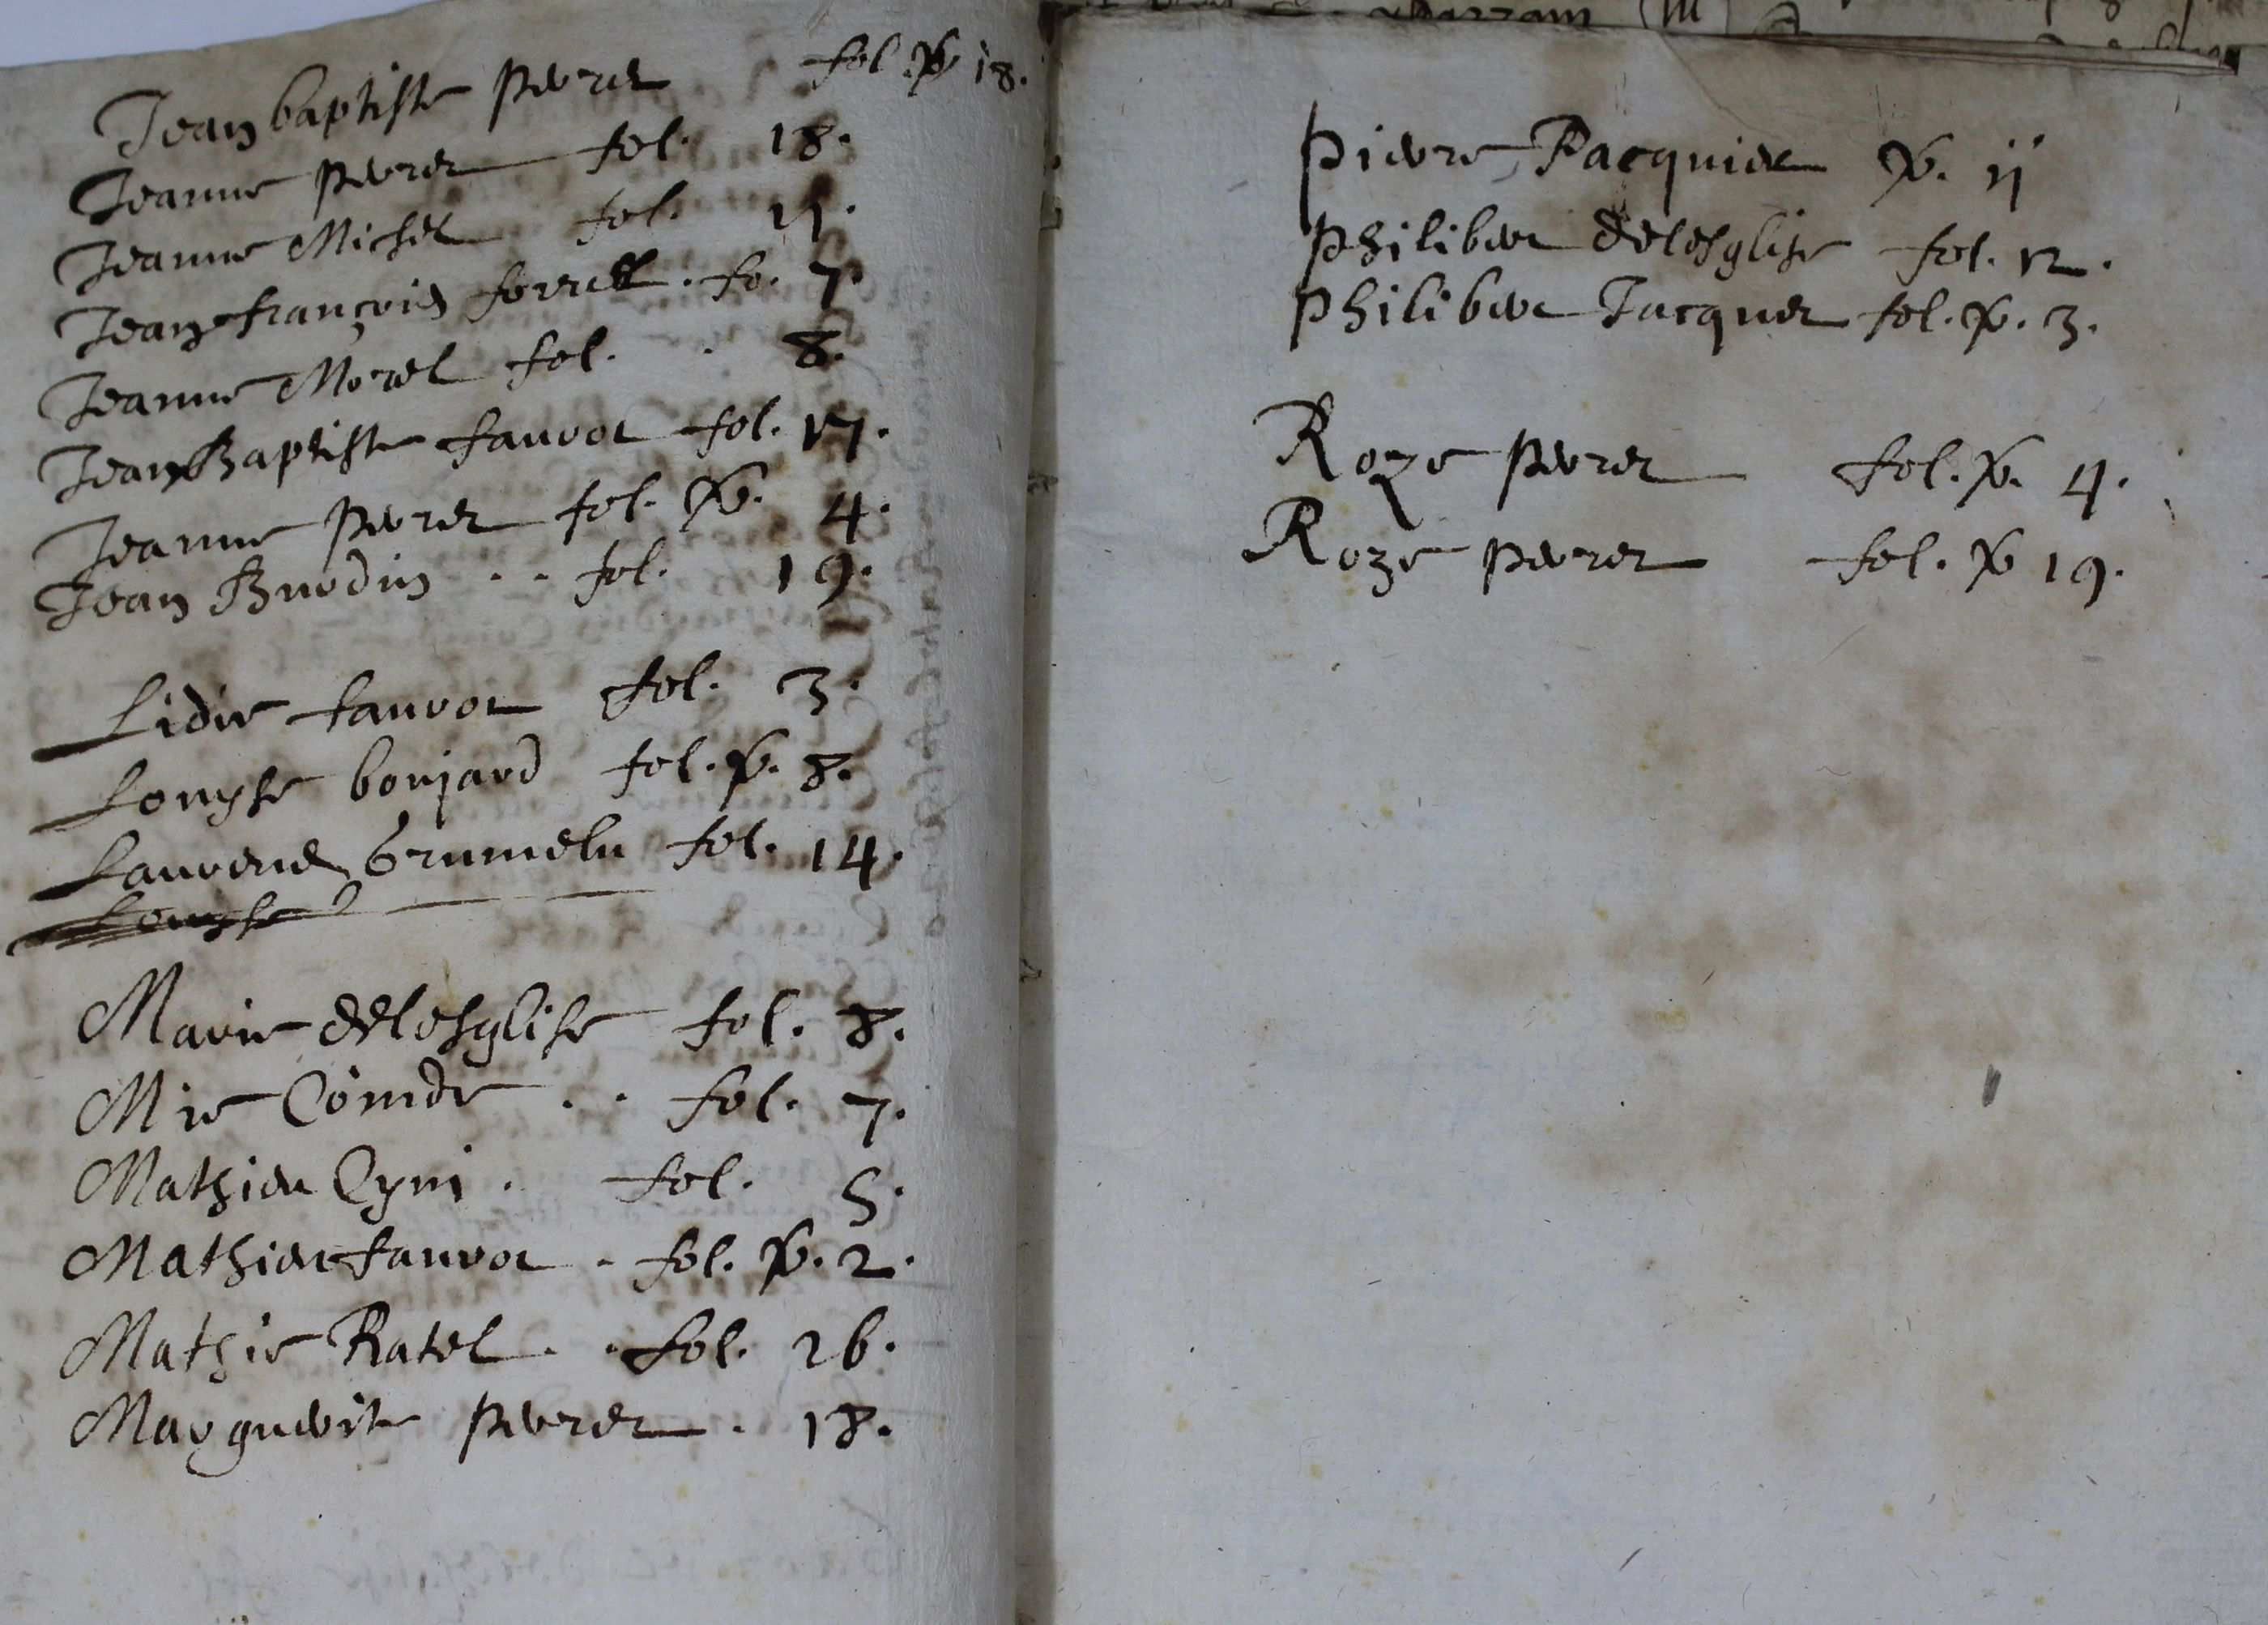 Jean baptiste perret fol. v° 18.
Jeanne perret fol. 18.
Jeanne Michel fol. 11.
Jean françois ferrell. fo. 7.
Jeanne Morel fol. . 8.
Jean Baptiste fauvot fol. 17.
Jeanne perret fol. v°. 4.
Jean Buodin . . fol. 19.
Lidie fauvot fol. 3.
Louyse boujard fol. v°. 8.
Laurens Grumelu fol. 14.
Louyse
Marie delesglise fol. 8.
Mie . . fol. 7.
Mathieu Cyni . fol. 5.
Mathieu fauvot . fol. v°. 2.
Mathie Ratel . . fol. 26.
Marguerite perret . 18.
pierre Pacquier v°. 11
philibert delesglise fol. 12.
philibert Jacquet fol. v°. 3.
Roze perret fol. v°. 4.
Roze perret fol. v° 19.